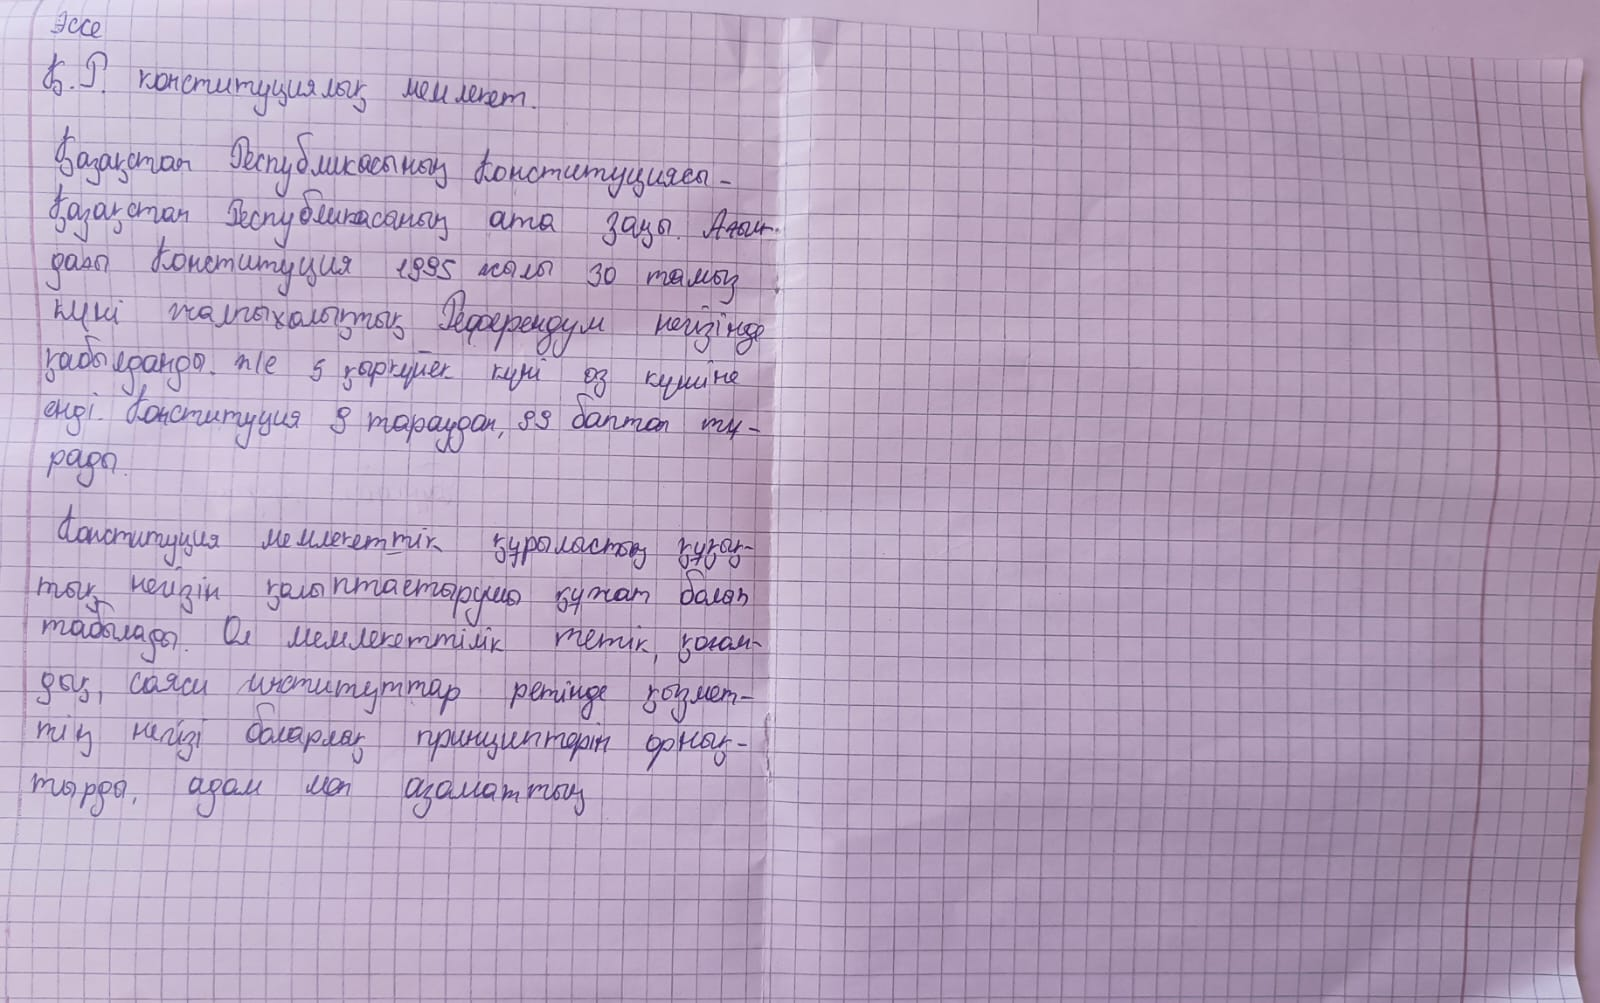 Эссе
Қ.Р. конституциялық мемлекет.
Қазақстан Республикасының Конституциясы -
Қазақстан Республикасының ата заңы. Ағым-
дағы Конституция 1995 жылы 30 тамыз
күні жалпыхалықтық Референдум негізінде
қабылданды. ж/е 5 қыркүйек күні өз күшіне
енді. Конституция 9 тараудан, 99 баптан тұ-
рады.
Конституция мемлекеттік құрылыстың құқық-
тық негізін қалыптастырушы құжат болып
табылады. Ол мемлекеттілік тетік, қоғам-
дық, саяси институттар ретінде қызмет-
тің негізі боларлық принциптерін орнық-
тырды, адам мен азаматтың